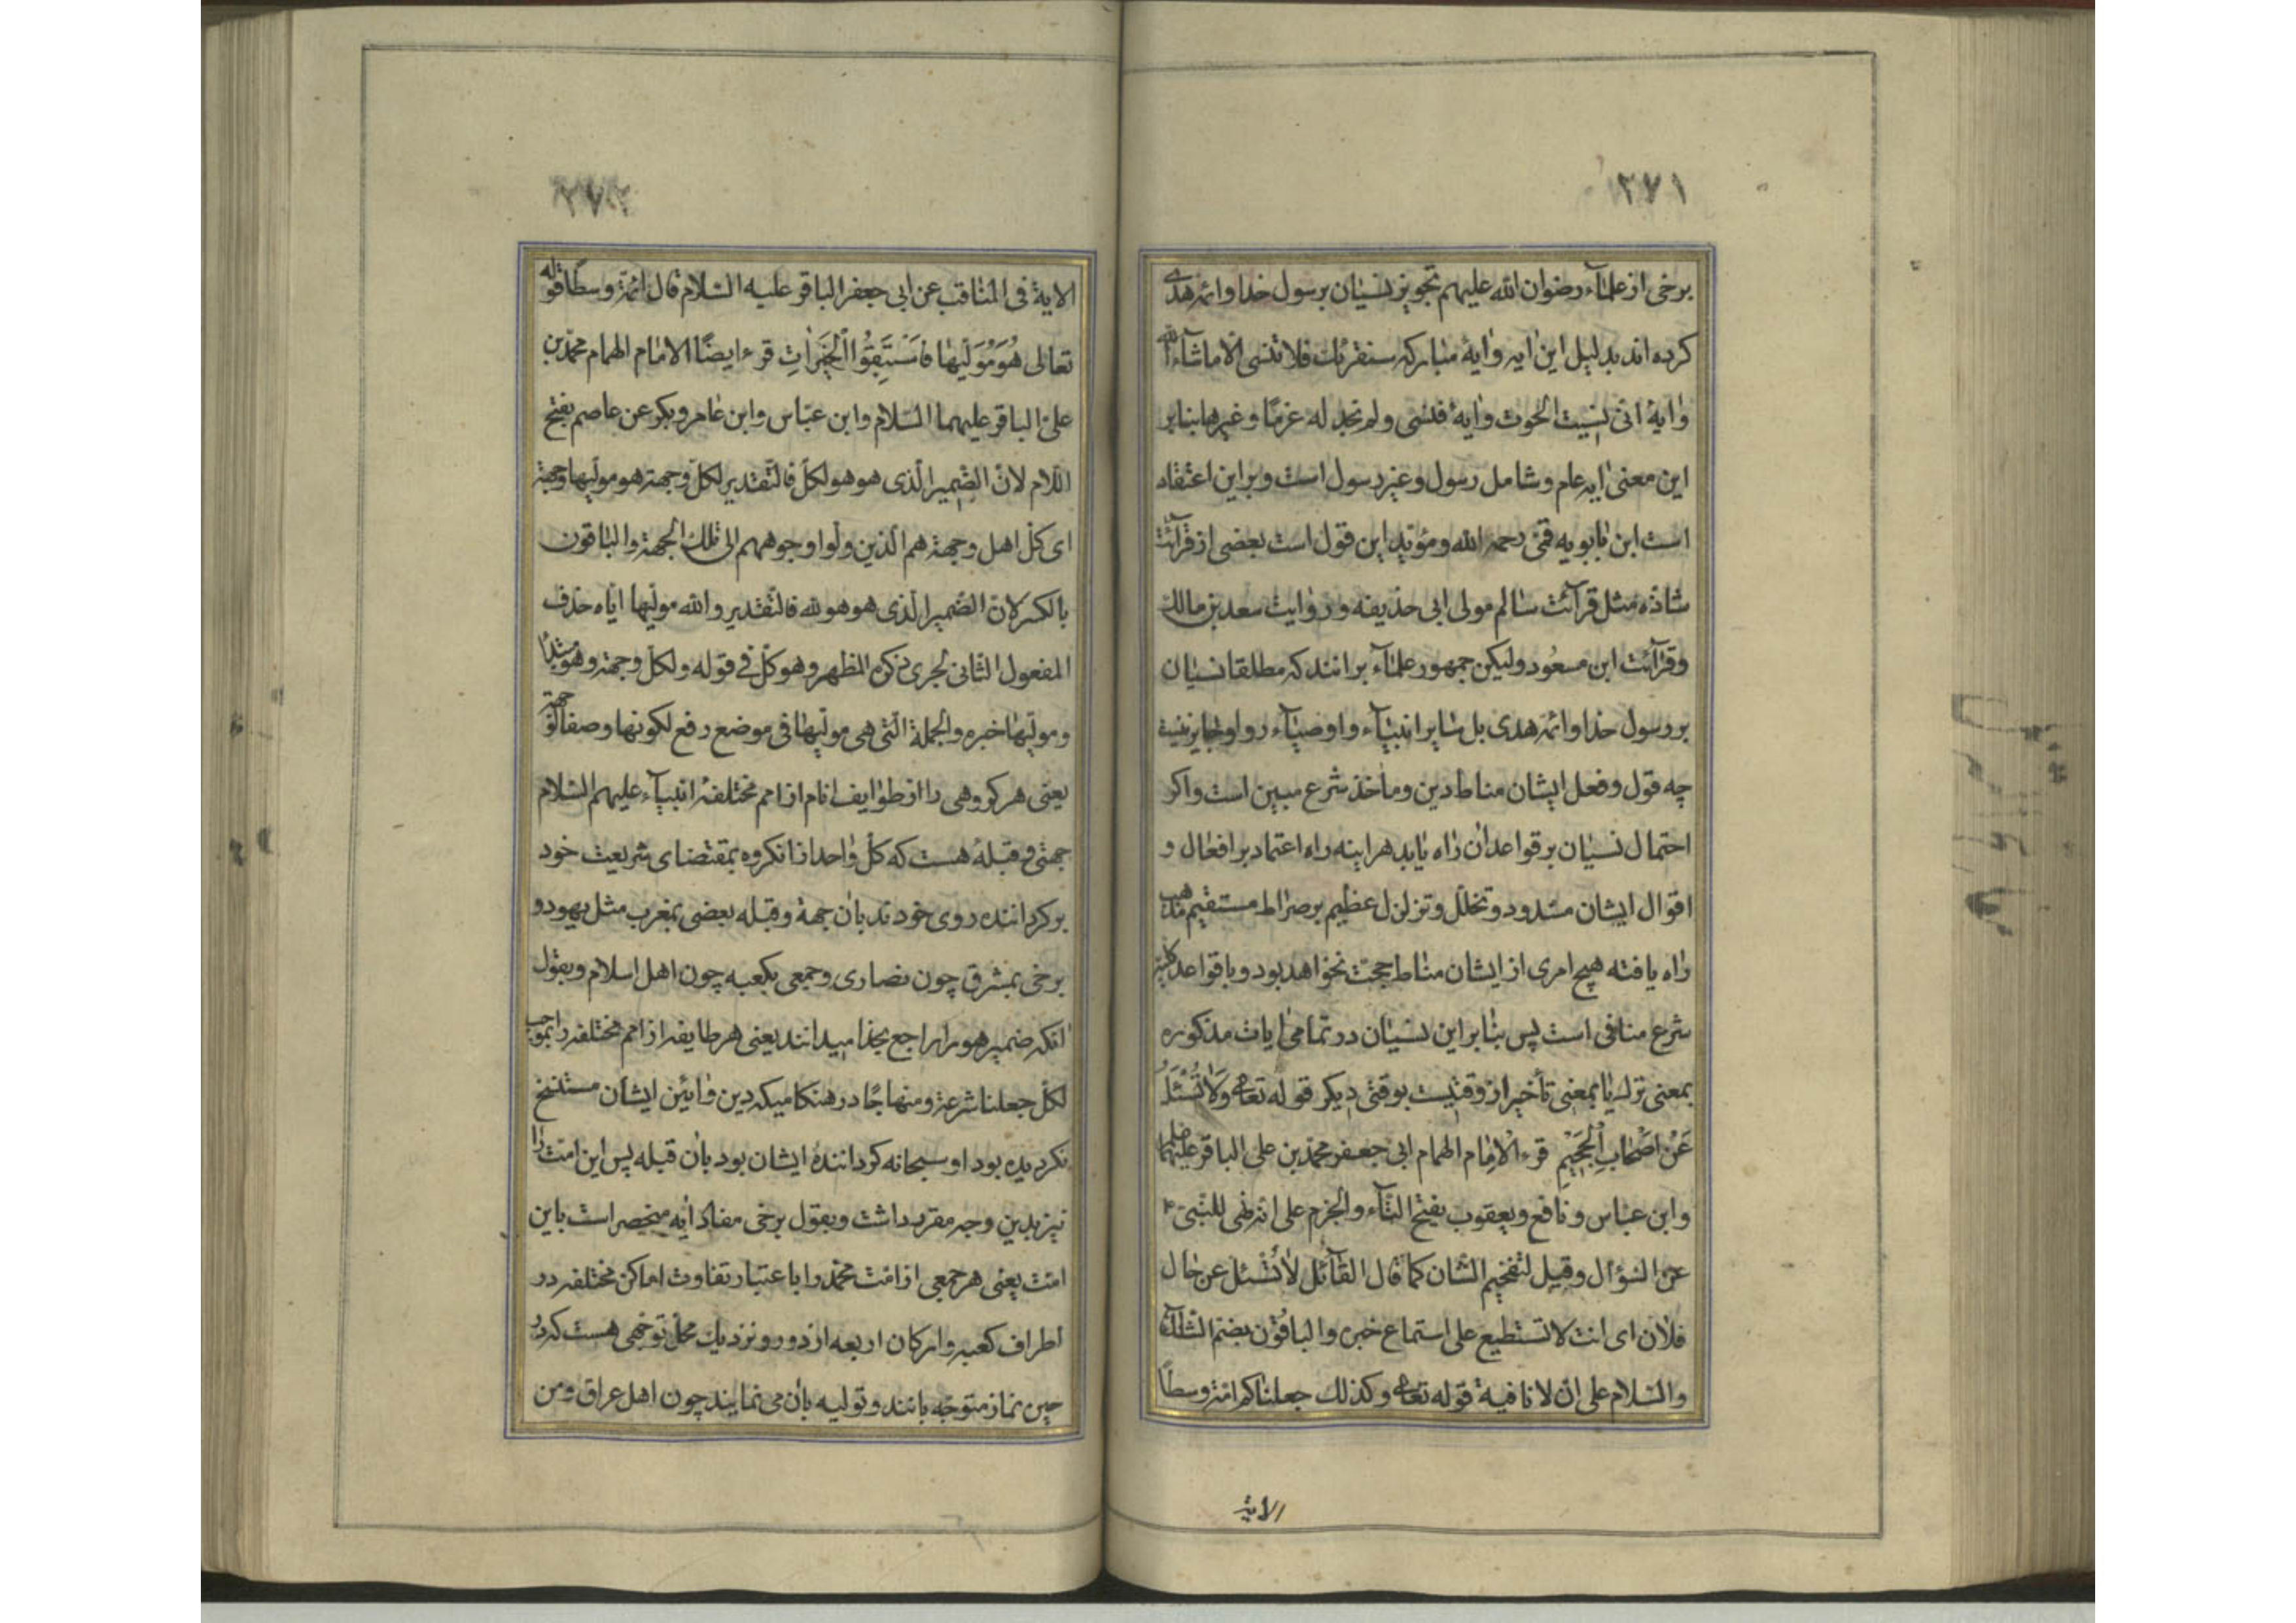 ۲۷۱
برخی از علمآء رضوان الله علیهم تجویز نسیان بر رسول خدا و ائمه هدی
کرده اند بدلیل این آیه و آیهٔ مبارکه سنقرئک فلا تنسی الا ماشآء الله
و آیهٔ انی نسیت الحوت و آیهٔ فنسی ولم نجد له عزمًا و غیرها بنابر
این معنی آیه عام و شامل رسول و غیر رسول است و بر این اعتقاد
است ابن بابویه قمّی رحمه الله و مؤیّد این قول است بعضی از قرآئت
شاذّه مثل قرآئت سالم مولی ابی حذیفه و روایت سعد بن مالک
و قرآئت ابن مسعُود ولیکن جمهور علمآء برانند که مطلقا نسیان
بر رسول خدا و ائمه هدی بل سایر انبیآء و اوصیآء روا و جایز نیست
چه قول و فعل ایشان مناط دین و مأخذ شرع مبین است و اکر
احتمال نسیان بر قواعد آن راه یابد هراینه راه اعتماد بر افعال و
اقوال ایشان مسدود و تخلل و تزلزل عظیم بر صراط مستقیم مذهب
راه یافته هیچ امری از ایشان مناط حجت نخواهد بود و با قواعد کلیه
شرع منافی است پس بنابر این نسیان در تمامی ایات مذکوره
بمعنی ترک یا بمعنی تأخیر از وقتیست بوقتی دیکر قوله تعا وَلا تُسْئَلُ
عَنْ اَصْحابِ الْجَحیٖمِ قرء الامام الهمام ابی جعفر محمّد بن علی الباقر علیهما
وابن عباس و نافع و یعقوب بفتح التآء والجزم علی انه نهی للنّبی
عن السّؤال وقیل لتفخیم الشّان کما قال القآئل لا تسئل عن حال
فلان ای انت لا تستطیع علی استماع خبره والباقون بضم التآء
والسّلام علی انّ لا نافیة قوله تعا وکذلک جعلناکم امّة وسطًا
الایة
۲۷۲
الایة فی المناقب عن ابی جعفر الباقر علیه السّلام قال ائمّة وسطًا قوله
تعالی هُوَ مُوَلّیها فَاسْتَبِقُوا الْخَیْراتِ قرء ایضًا الامام الهمام محمّد بن
علیّ الباقر علیهما السّلام وابن عبّاس وابن عامر وبکر عن عاصم بفتح
اللّام لانّ الضّمیر الّذی هو هو لکلّ فالتّقدیر لکلّ وجهة هو مولّیها وجهة
ای کلّ اهل وجهة هم الّذین ولّوا وجوههم الی تلک الجهة والباقون
بالکسر لانّ الضّمیر الّذی هو هو لله فالتّقدیر والله مولّیها ایّاه حذف
المفعول الثّانی لجری ذکره المظهر وهو کلّ فی قوله ولکلّ وجهة وهو مبتدا
ومولّیها خبره والجملة الّتی هی مولّیها فی موضع رفع لکونها وصفا لوجهة
یعنی هر کروهی را از طوایف انام از امم مختلفهٔ انبیآء علیهم السّلام
جهتی و قبلهٔ هست که کلّ واحد از انکروه بمقتضای شریعت خود
برکرداننده روی خودند بان جهة و قبله بعضی بمغرب مثل یهود و
برخی بمشرق چون نصاری و جمعی بکعبه چون اهل اسلام و بقول
انکه ضمیر هو را راجع بخدا میدانند یعنی هر طایفه از امم مختلفه را بموجب
لکلّ جعلنا شرعة ومنهاجًا در هنکامیکه دین و آیین ایشان مستنسخ
نکردیده بود او سبحانه کردانندهٔ ایشان بود بان قبله پس این امّت را
نیز بدین وجه مقرر داشت و بقول برخی مفاد آیه منحصر است باین
امّت یعنی هر جمعی از امّت محمّد را باعتبار تفاوت اماکن مختلفه در
اطراف کعبه و ارکان اربعه از دور و نزدیک محلّ توجّهی هست که در
حین نماز متوجّه باشند و تولیه بان می نمایند چون اهل عراق و من